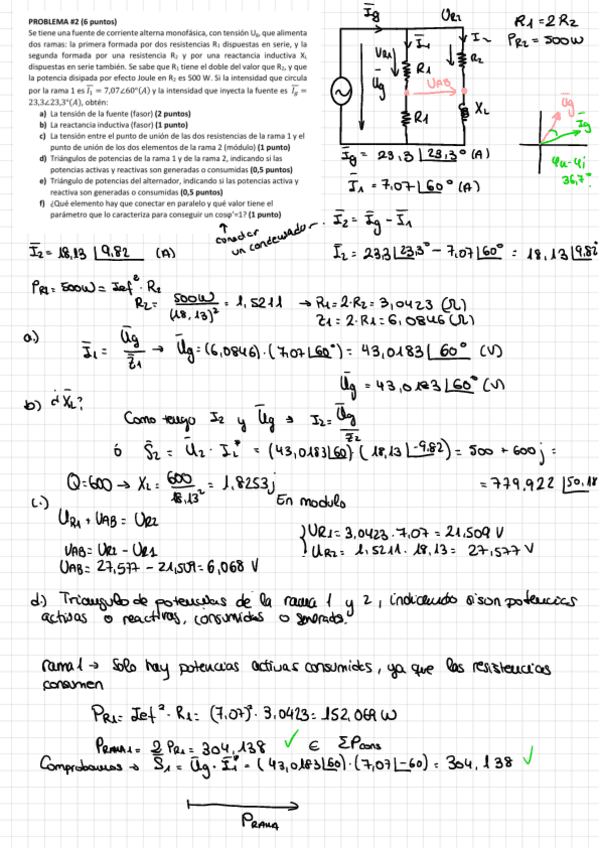 PROBLEMA #2 (6 puntos)
Se tiene una fuente de corriente alterna monofásica, con tensión Ug, que alimenta
dos ramas: la primera formada por dos resistencias R₁ dispuestas en serie, y la
segunda formada por una resistencia R₂ y por una reactancia inductiva XL
dispuestas en serie también. Se sabe que R₁ tiene el doble del valor que R₂, y que
la potencia disipada por efecto Joule en R₂ es 500 W. Si la intensidad que circula
por la rama 1 es I̅₁ = 7,07∠60°(A) y la intensidad que inyecta la fuente es I̅g =
23,3∠23,3°(A), obtén:
a) La tensión de la fuente (fasor) (2 puntos)
b) La reactancia inductiva (fasor) (1 punto)
c) La tensión entre el punto de unión de las dos resistencias de la rama 1 y el
punto de unión de los dos elementos de la rama 2 (módulo) (1 punto)
d) Triángulos de potencias de la rama 1 y de la rama 2, indicando si las
potencias activas y reactivas son generadas o consumidas (0,5 puntos)
e) Triángulo de potencias del alternador, indicando si las potencias activa y
reactiva son generadas o consumidas (0,5 puntos)
f) ¿Qué elemento hay que conectar en paralelo y qué valor tiene el
parámetro que lo caracteriza para conseguir un cosφ'=1? (1 punto)
I̅g
UR2
R1 = 2R2
PR2 = 500W
UR1
I̅1
I2
R1
R2
U̅g
UAB
R1
XL
U̅g
I̅g
4u-4i
36,7°
I̅g = 23,3 |23,3° (A)
I̅1 = 7,07 |60° (A)
conectar
un condensador
I̅2 = I̅g - I̅1
I̅2 = 18,13 |9,82 (A)
I̅2 = 233 |23,3° - 7,07 |60° = 18,13 |9,82
PR2 = 500W = Ief² · R2
R2 = 500W / (18,13)² = 1,5211 → R1 = 2·R2 = 3,0423 (Ω)
Z1 = 2·R1 = 6,0846 (Ω)
a.)
I̅1 = U̅g / Z̅1 → U̅g = (6,0846)·(7,07 |60°) = 43,0183 |60° (V)
U̅g = 43,0183 |60° (V)
b) ¿X̅L?
Como tengo I2 y U̅g → I2 = U̅g / Z2
ó S̅2 = U̅2 · I̅2* = (43,0183 |60) (18,13 |-9,82) = 500 + 600j =
Q = 600 → XL = 600 / 18,13² = 1,8253j
= 779,922 |50,18
c.)
En modulo
UR1 + UAB = UR2
UR1 = 3,0423 · 7,07 = 21,509 V
UAB = UR2 - UR1
UR2 = 1,5211 · 18,13 = 27,577 V
UAB = 27,577 - 21,509 = 6,068 V
d.) Triangulo de potencias de la rama 1 y 2, indicando si son potencias
activas o reactivas, consumidas o generadas.
rama 1 → Solo hay potencias activas consumidas, ya que las resistencias
consumen
PR1 = Ief² · R1 = (7,07)² · 3,0423 = 152,069 W
PRAMA1 = 2 PR1 = 304,138 ✓ ∈ ΣPcons
Comprobamos → S̅1 = U̅g · I̅1* = (43,0183 |60)·(7,07 |-60) = 304,138 ✓
PRAMA